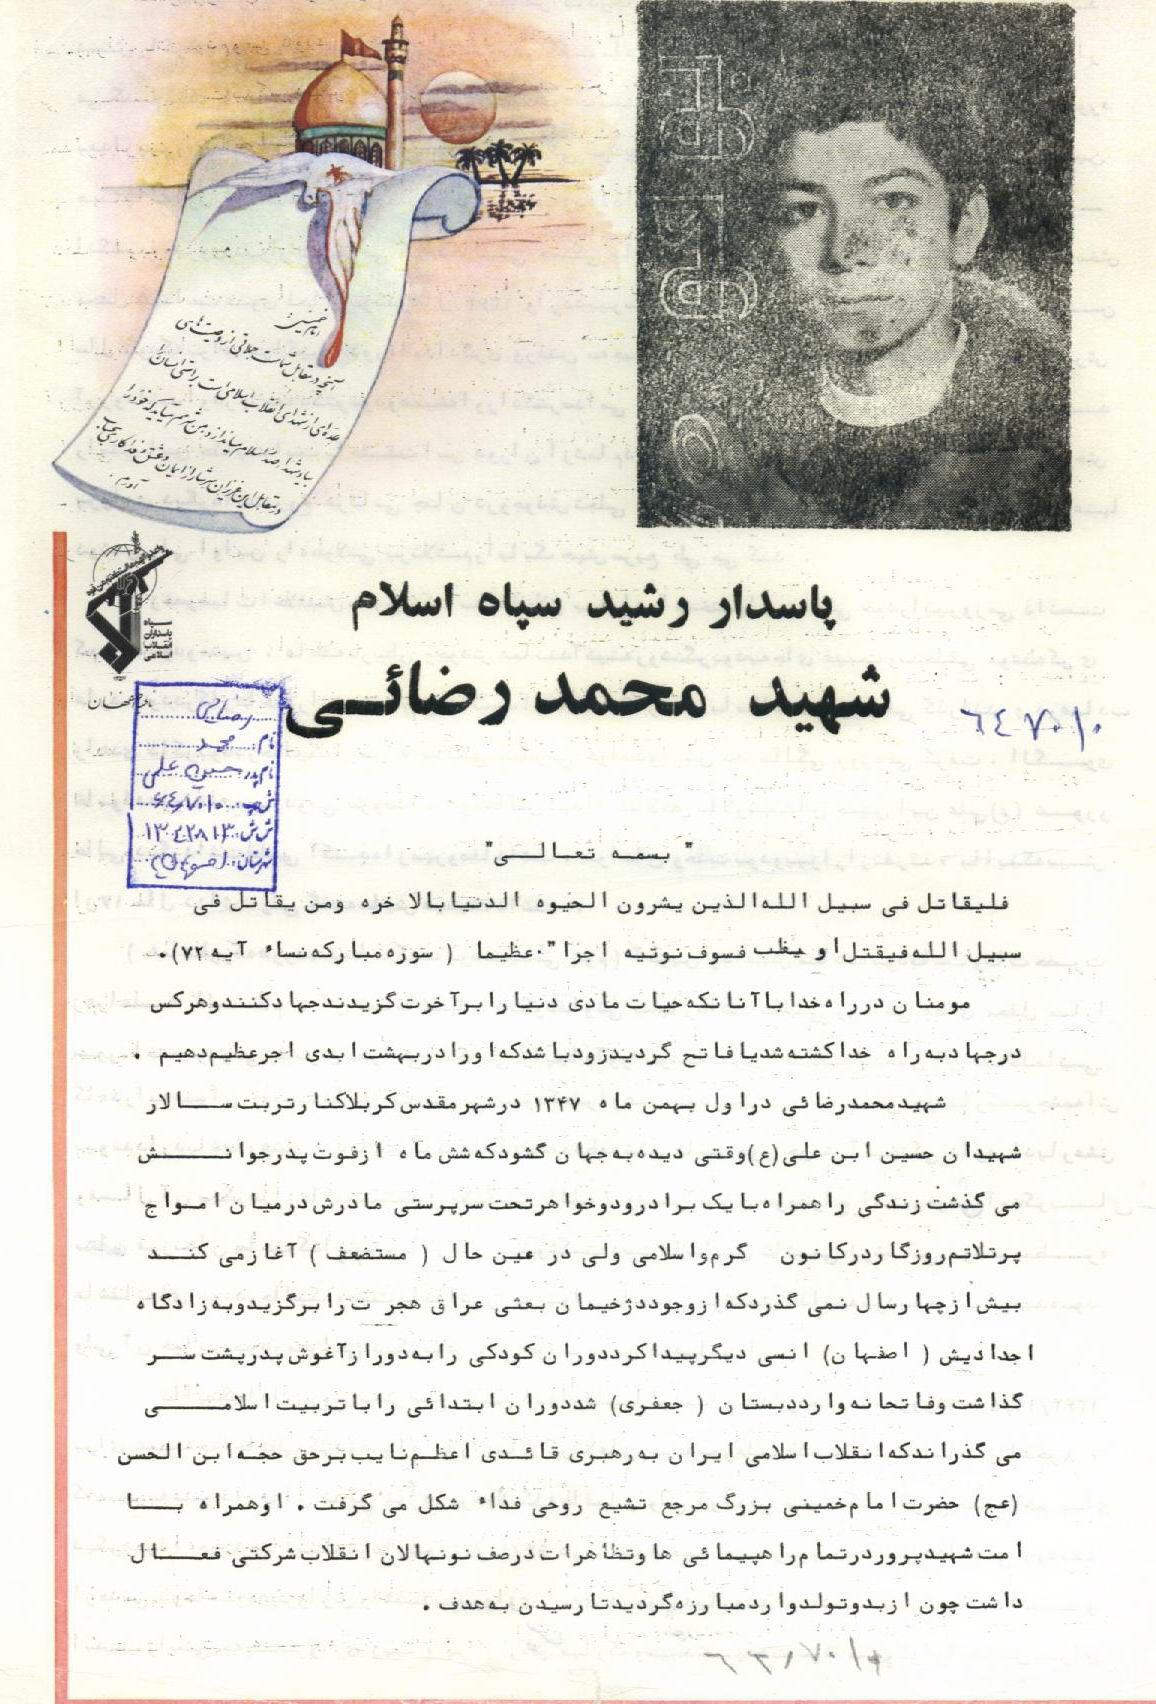 امام خمینی:
آنچه در مقابل شماست جملاتی از وصیت‌های
عده‌ای از شهدای انقلاب اسلامی است راستی انسان را
بیاد شهدا صدر اسلام میاندازد من شرمم میآید که خود را
در مقابل این عزیزان سرشار از ایمان و عشق و فداکاری بحساب
آورم.
سپاه
پاسداران
انقلاب
اسلامی
پاسدار رشید سپاه اسلام
شهید محمد رضائی
٦٤٧٠١٠
رضایی
نام: محمد
نام پدر: حسین علی
ش پ: ٦٤٧٠١٠
ش ش: ١٣٤٢٨١٣
شهرستان: اصفهان
" بسمه تعالی"
فلیقاتل فی سبیل الله الذین یشرون الحیوه الدنیا بالاخره ومن یقاتل فی
سبیل الله فیقتل او یغلب فسوف نوتیه اجرا" عظیما ( سوره مبارکه نساء آیه ۷۲).
مومنان در راه خدا با آنانکه حیات مادی دنیا را بر آخرت گزیدند جهاد کنند و هرکس
در جهاد به راه خدا کشته شد یا فاتح گردید زود باشد که او را در بهشت ابدی اجر عظیم دهیم .
شهید محمد رضائی در اول بهمن ماه ۱۳۴۷ در شهر مقدس کربلا کنار تربت سالار
شهیدان حسین ابن علی (ع) وقتی دیده به جهان گشود که شش ماه از فوت پدر جوانش
می گذشت زندگی را همراه با یک برادر و دو خواهر تحت سرپرستی مادرش در میان امواج
پرتلاتم روزگار در کانون گرم و اسلامی ولی در عین حال ( مستضعف ) آغاز می کند
بیش از چهار سال نمی گذرد که از وجود دژخیمان بعثی عراق هجرت را برگزید و به زادگاه
اجدادیش ( اصفهان) انسی دیگر پیدا کرد دوران کودکی را به دور از آغوش پدر پشت سر
گذاشت و فاتحانه وارد دبستان ( جعفری) شد دوران ابتدائی را با تربیت اسلامی
می گذراند که انقلاب اسلامی ایران به رهبری قائدی اعظم نایب بر حق حجه ابن الحسن
(عج) حضرت امام خمینی بزرگ مرجع تشیع روحی فداء شکل می گرفت . او همراه با
امت شهید پرور در تمام راهپیمائی ها و تظاهرات در صف نونهالان انقلاب شرکتی فعال
داشت چون از بدو تولد وارد مبارزه گردید تا رسیدن به هدف .